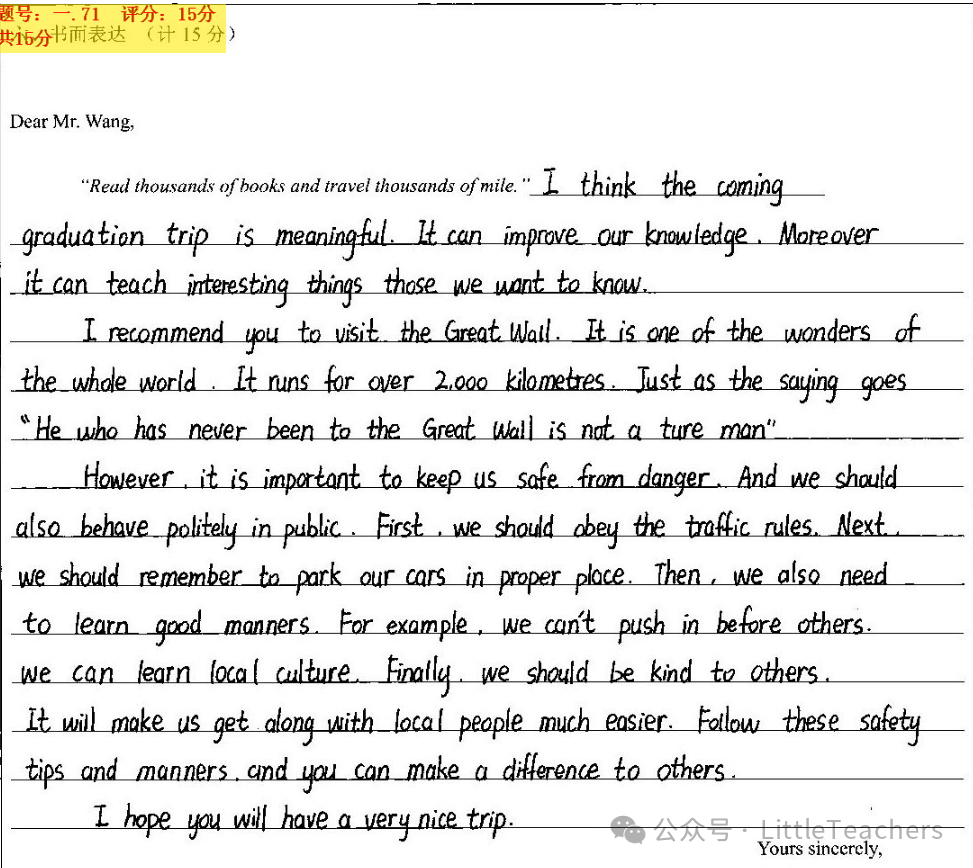 题号：一.71 评分：15分
共15分 书面表达 （计 15 分）
Dear Mr. Wang,
"Read thousands of books and travel thousands of mile." I think the coming
graduation trip is meaningful. It can improve our knowledge. Moreover
it can teach interesting things those we want to know.
I recommend you to visit the Great Wall. It is one of the wonders of
the whole world. It runs for over 2,000 kilometres. Just as the saying goes
"He who has never been to the Great Wall is not a ture man"
However, it is important to keep us safe from danger. And we should
also behave politely in public. First, we should obey the traffic rules. Next,
we should remember to park our cars in proper place. Then, we also need
to learn good manners. For example, we can't push in before others.
we can learn local culture. Finally, we should be kind to others.
It will make us get along with local people much easier. Follow these safety
tips and manners, and you can make a difference to others.
I hope you will have a very nice trip.
公众号 · LittleTeachers
Yours sincerely,